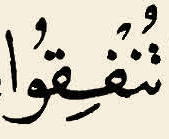 تُنفِقُوا